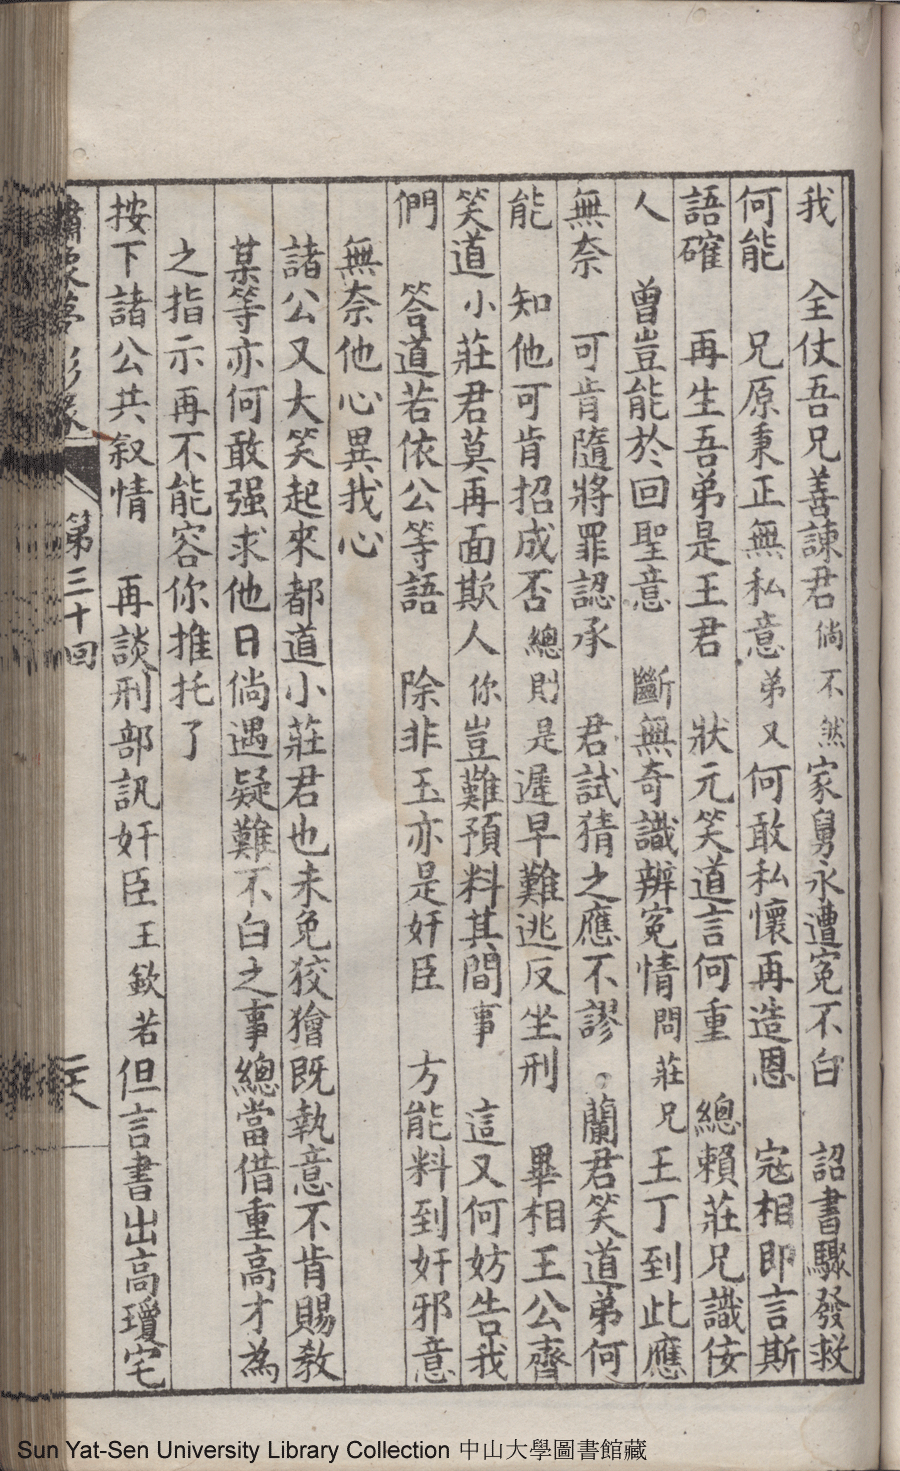 我　全仗吾兄善諫君倘不然家舅永遭冤不白　詔書驟發救
何能　兄原秉正無私意弟又何敢私懷再造恩　寇相即言斯
語確　再生吾弟是王君　狀元笑道言何重　總賴莊兄識佞
人　曾豈能於回聖意　斷無奇識辨冤情問莊兄王丁到此應
無奈　可肯隨將罪認承　君試猜之應不謬　蘭君笑道弟何
能　知他可肯招成否總則是遲早難逃反坐刑　畢相王公齊
笑道小莊君莫再面欺人你豈難預料其間事　這又何妨告我
們　答道若依公等語　除非玉亦是奸臣　方能料到奸邪意
無奈他心異我心
諸公又大笑起來都道小莊君也未免狡獪既執意不肯賜教
某等亦何敢强求他日倘遇疑難不白之事總當借重高才為
之指示再不能容你推托了
按下諸公共叙情　再談刑部訊奸臣王欽若但言書出高瓊宅
夢影緣
第三十回